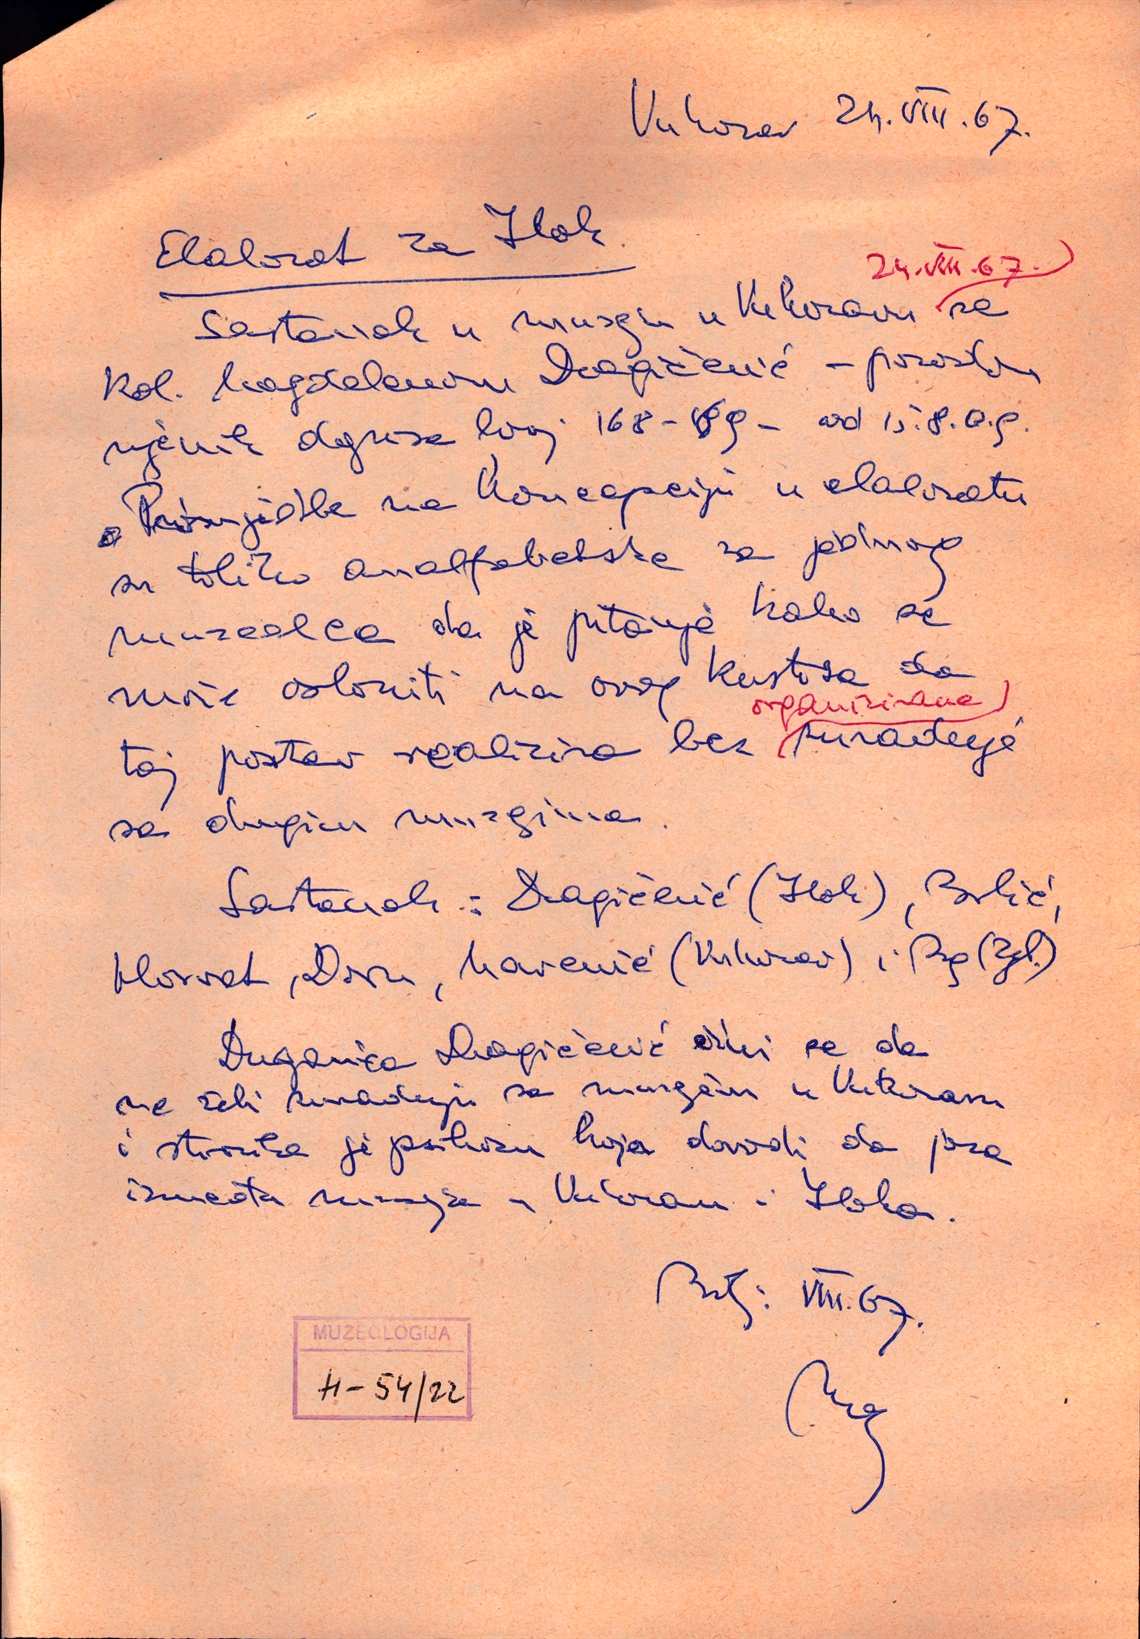 Vukovar 24.VIII.67.
Elaborat za Ilok.
24.VIII.67.
Sastanak u muzeju u Vukovaru sa
Kol. Magdalenom Dragičević - povodom
njenih dopisa broj 168-169- od 15.8.o.g.
Primjedbe na Koncepciju u elaboratu
su toliko analfabetske za jednog
muzealca da je pitanje kako se
može osloniti na ovog kustosa da
organizirane
taj postav realizira bez suradnje
sa drugim muzejima.
Sastanak: Dragičević (Ilok), Brlić,
Horvat, Dorn, Marević (Vukovar) i (Zgb.)
Drugarica Dragičević čini se da
ne želi suradnju sa muzejom u Vukovaru
i stvorila je psihozu koja dovodi do jaza
između muzeja u Vukovaru i Iloka.
VIII.67.
MUZEOLOGIJA
H-54/22